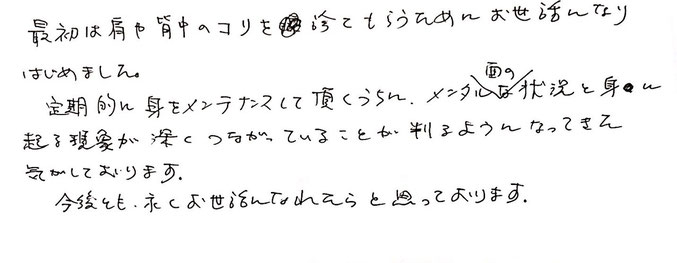 最初は肩や背中のコリを診てもらうためにお世話になり
はじめました。
定期的に身をメンテナンスして頂くうちに、メンタル面の状況と身に
起る現象が深くつながっていることが判るようになってきた
気がしております。
今後とも、永くお世話になれたらと思っております。